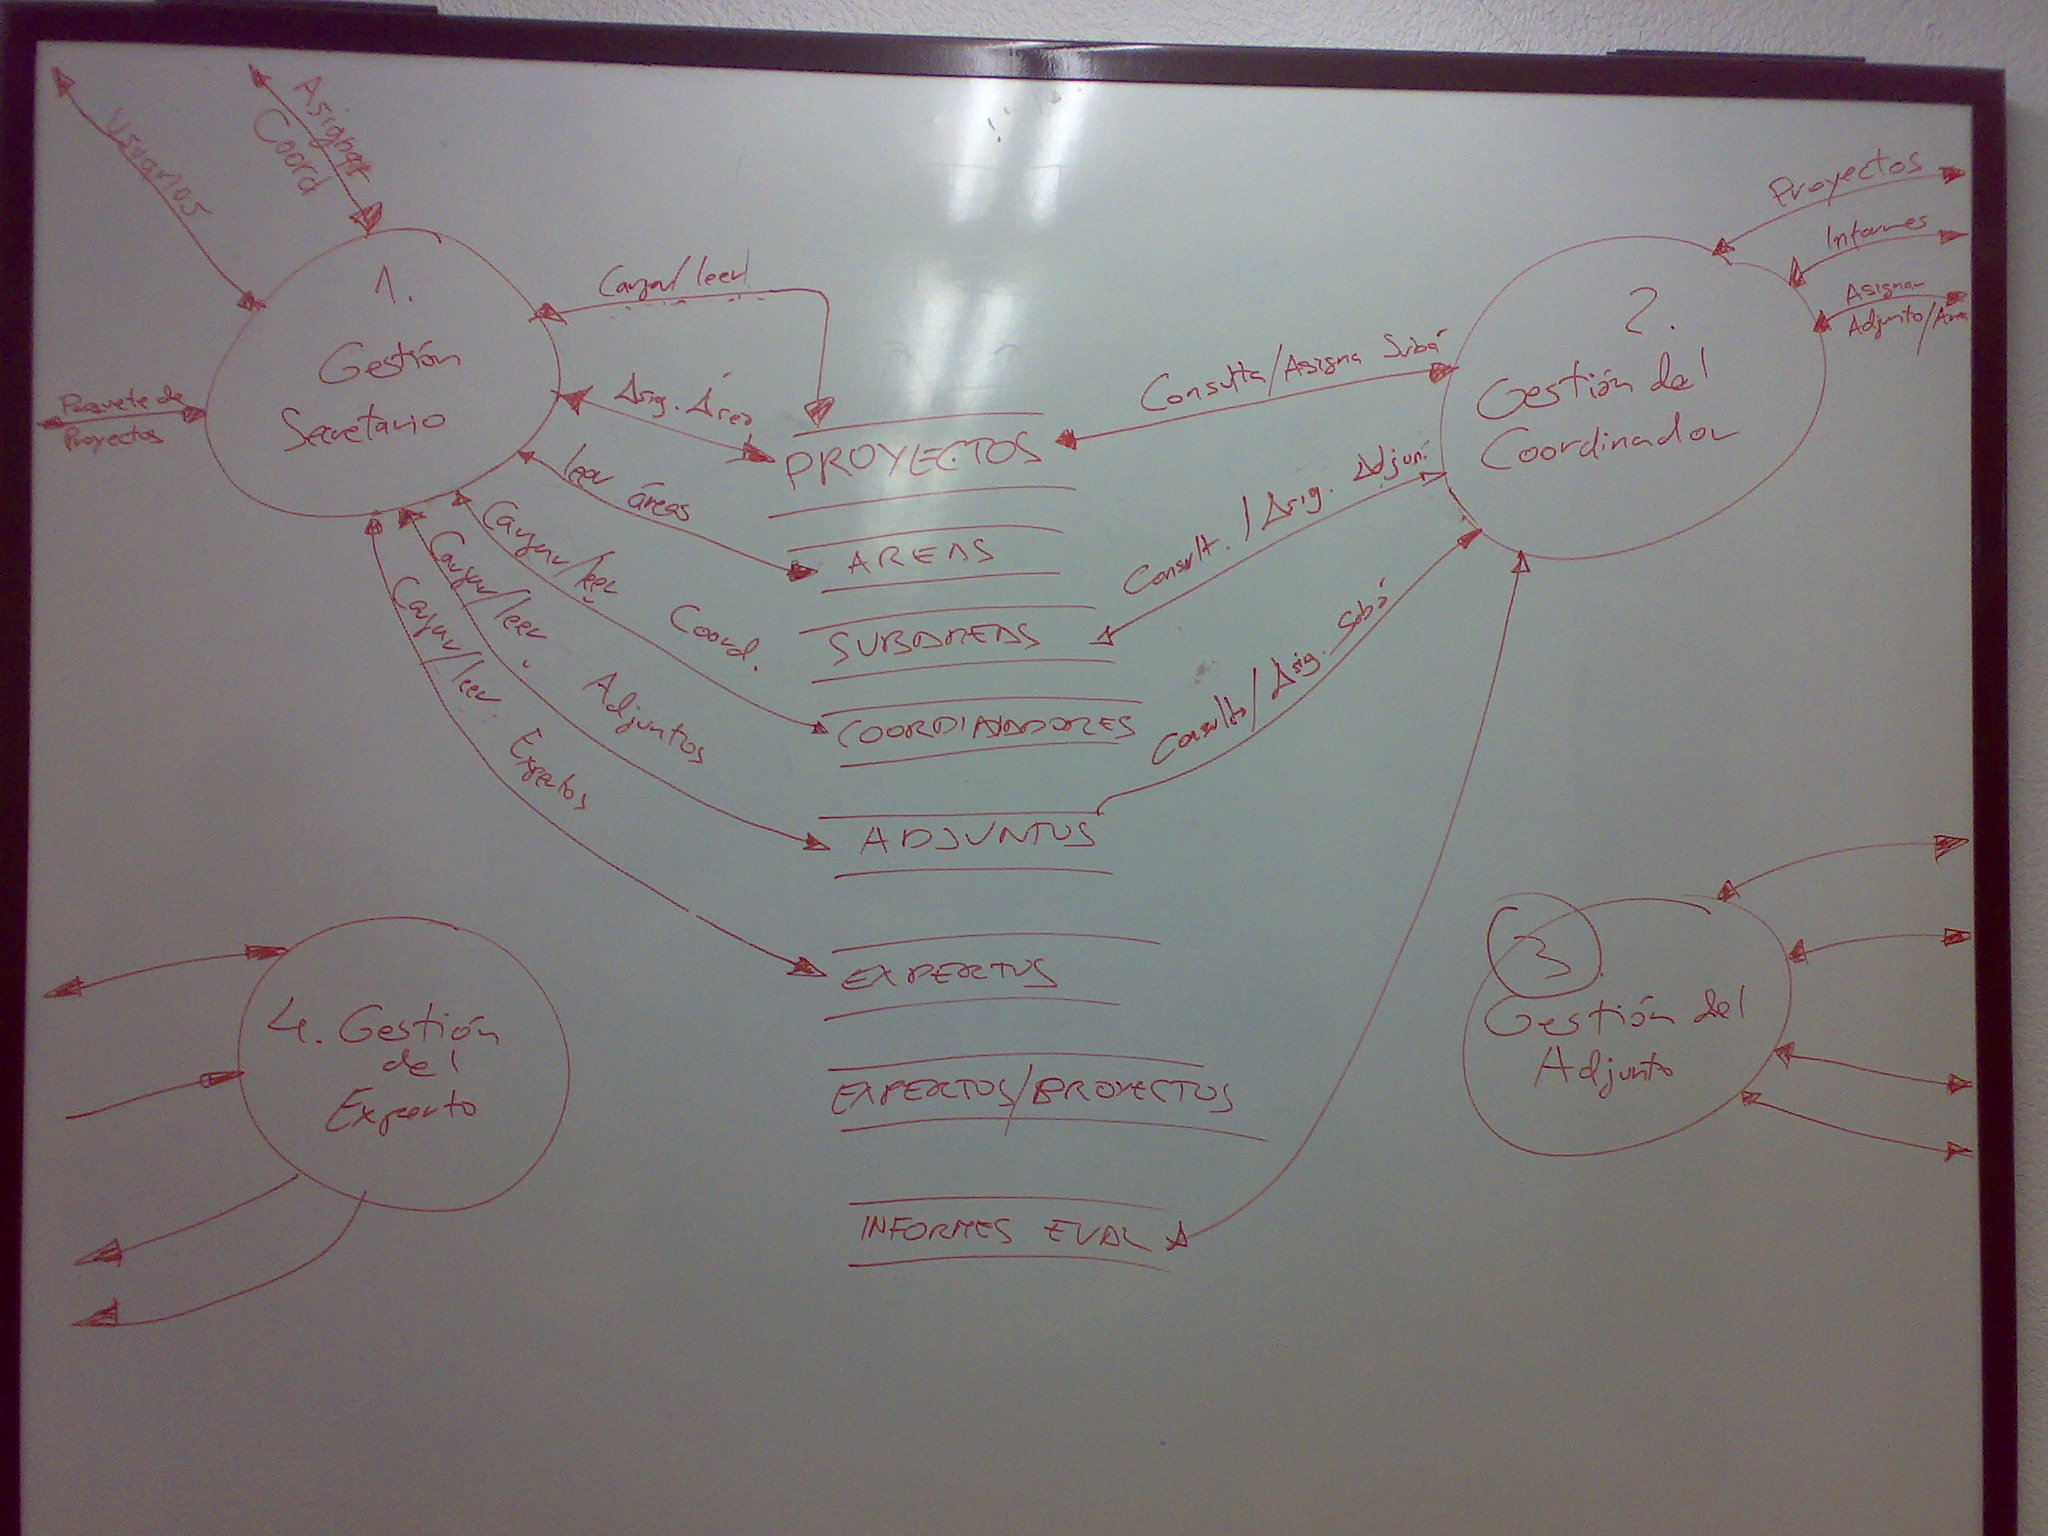 Usuarios
Asignar
Coord
1.
Gestión
Secretario
Paquete de
Proyectos
Cargar/leer
Asig. Área
leer áreas
Cargar/leer Coord.
Cargar/leer. Adjuntos
Cargar/leer. Expertos
PROYECTOS
AREAS
SUBAREAS
COORDINADORES
ADJUNTOS
EXPERTOS
EXPERTOS/PROYECTOS
INFORMES EVAL
Consulta/Asigna Subá
Consult. / Asig. Adjun.
Consulta/Asig. Subá
2.
Gestión del
Coordinador
Proyectos
Informes
Asignar
Adjunto/Area
3.
Gestión del
Adjunto
4. Gestión
del
Experto